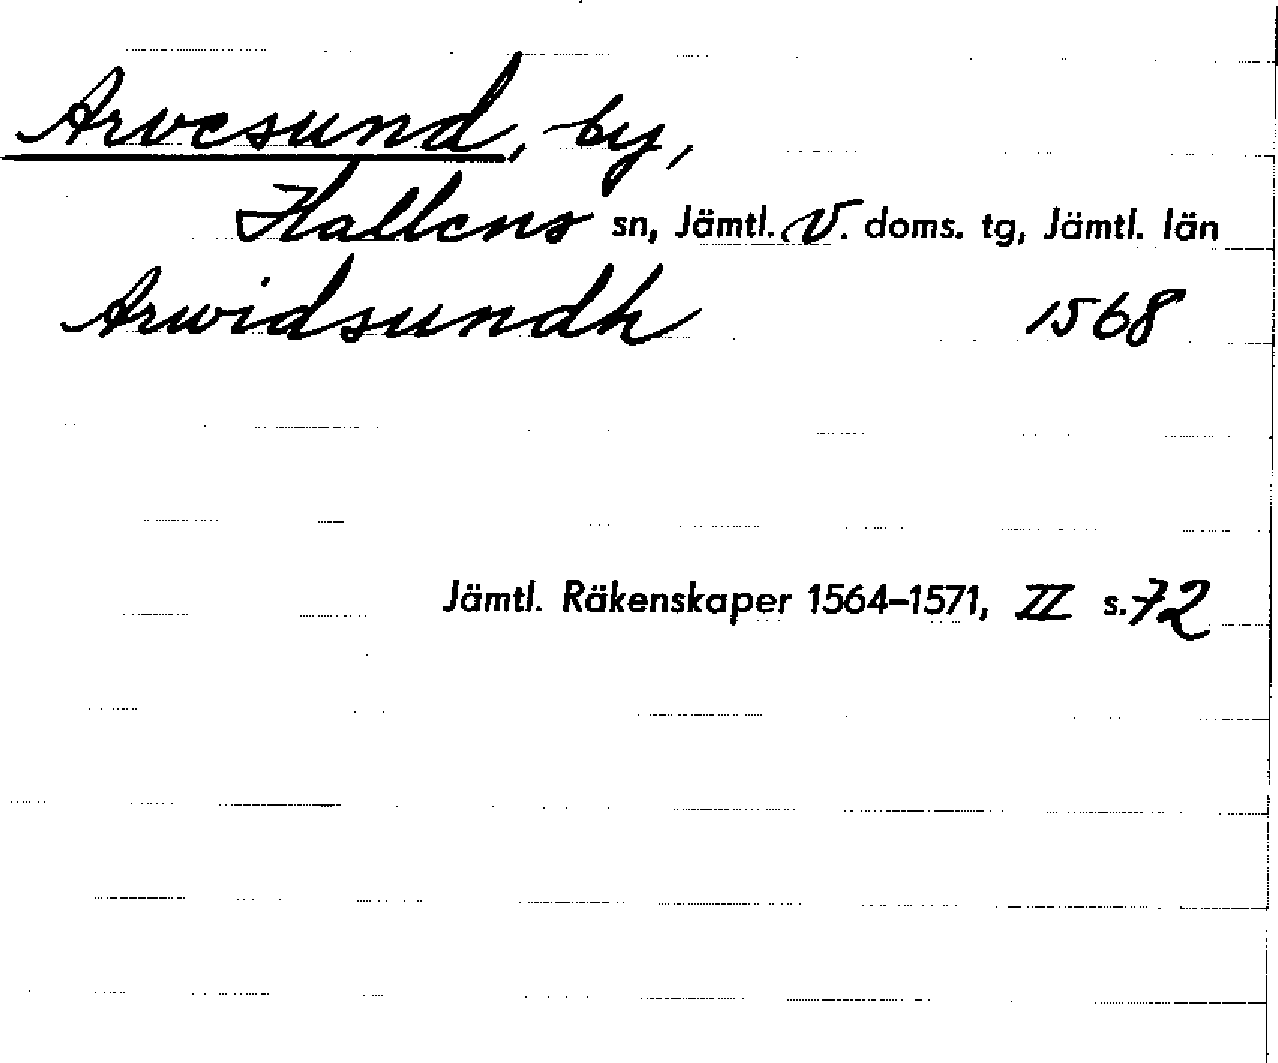 Arvesund, by,
Hallens sn, Jämtl. V. doms. tg, Jämtl. län
Arwidsundh 1568
Jämtl. Räkenskaper 1564–1571, II s. 72